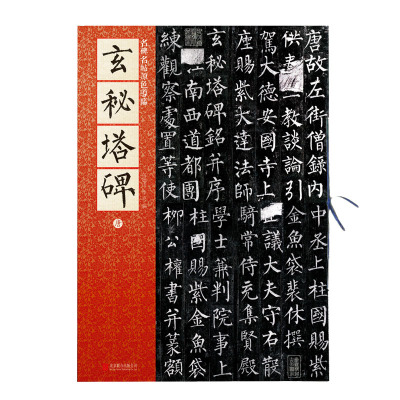 玄秘塔碑
唐故左街僧錄内中丞上柱國賜紫
供教談論引金魚袋裴休撰
駕大德安國寺上議大夫守右散
座賜紫大達法師騎常侍充集賢殿
玄秘塔碑銘并序學士兼判院事上
江南西道都團柱國賜紫金魚袋
練觀察處置等使柳公權書并篆額